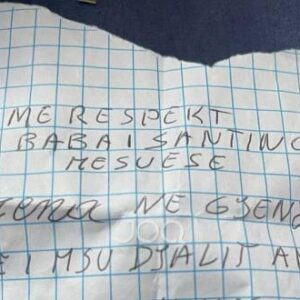 ME RESPEKT
BABAI SANTINO
MESUESE
NE GJEND
JOQ
I MSU DJALIT